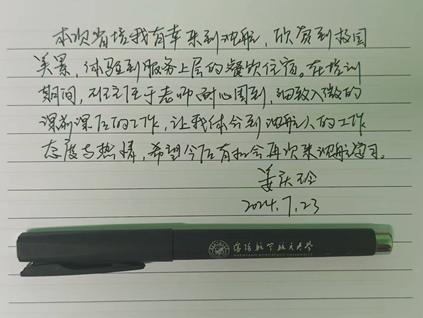 本次省培我有幸来到沈航，欣赏到校园
美景，体验到服务上层的餐饮住宿。在培训
期间，班主任于老师耐心周到，细致入微的
课前课后的工作，让我体会到沈航人的工作
态度与热情，希望今后有机会再次来沈航学习。
姜庆玲
2024.7.23
沈阳航空航天大学